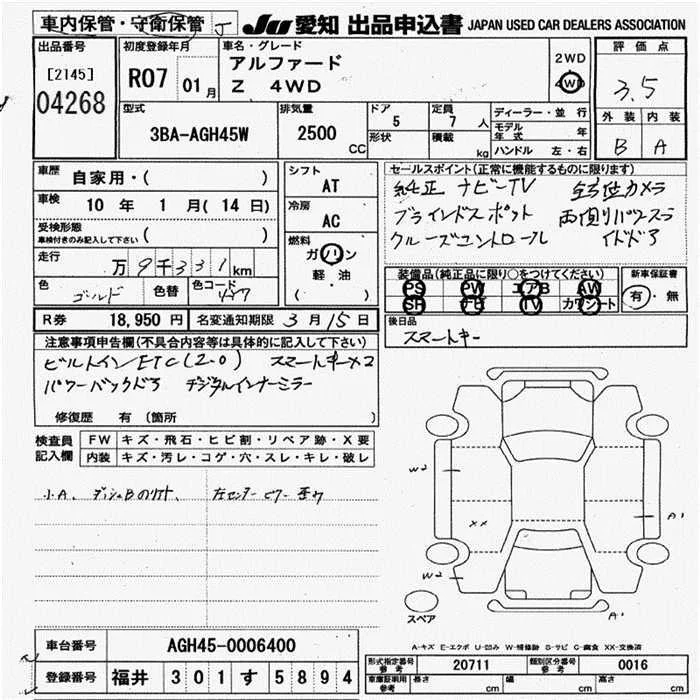 車内保管・守衛保管
JU 愛知 出品申込書 JAPAN USED CAR DEALERS ASSOCIATION
出品番号
[2145]
04268
初度登録年月
R07 01月
車名・グレード
アルファード
Z 4WD
2WD
4WD
評価点
3.5
外装 内装
B A
型式
3BA-AGH45W
排気量
2500
CC
ドア
5
形状
定員
7人
積載
kg
ディーラー・並行
モデル年式 年
ハンドル 左・右
車歴
自家用・( )
車検
10年 1月(14日)
受検形態
車検付きのみ記入して下さい ( )
走行
万9千331km
色
ゴールド
色替
色コード
4Y7
シフト
AT
冷房
AC
燃料
ガソリン
軽・油
( )
セールスポイント(正常に機能するものに限ります)
純正 ナビTV 全方位カメラ
ブラインドスポット 両側パワスラ
クルーズコントロール イドドア
装備品(純正品に限り○をつけてください)
PS PW エアB AW
SR ナビ TV カワシート
新車保証書
有・無
後日品
スマートキー
R券 18,950円 名変通知期限 3月15日
注意事項申告欄(不具合内容等は具体的に記入して下さい)
ビルトインETC(2.0) スマートキー×2
パワーバックドア デジタルインナーミラー
修復歴 有(箇所 )
検査員記入欄
FW キズ・飛石・ヒビ割・リペア跡・X要
内装 キズ・汚レ・コゲ・穴・スレ・キレ・破レ
左センターピラー歪ワ
W2
XX
W2
A1
A1
スペア
A-キズ E-エクボ U-凹み W-補修跡 S-サビ C-腐食 XX-交換済
車台番号 AGH45-0006400
登録番号 福井 301 す 5894
型式指定番号 参考 20711 類別区分番号 参考 0016
車庫証明用 参考 長さ cm 幅 cm 高さ cm